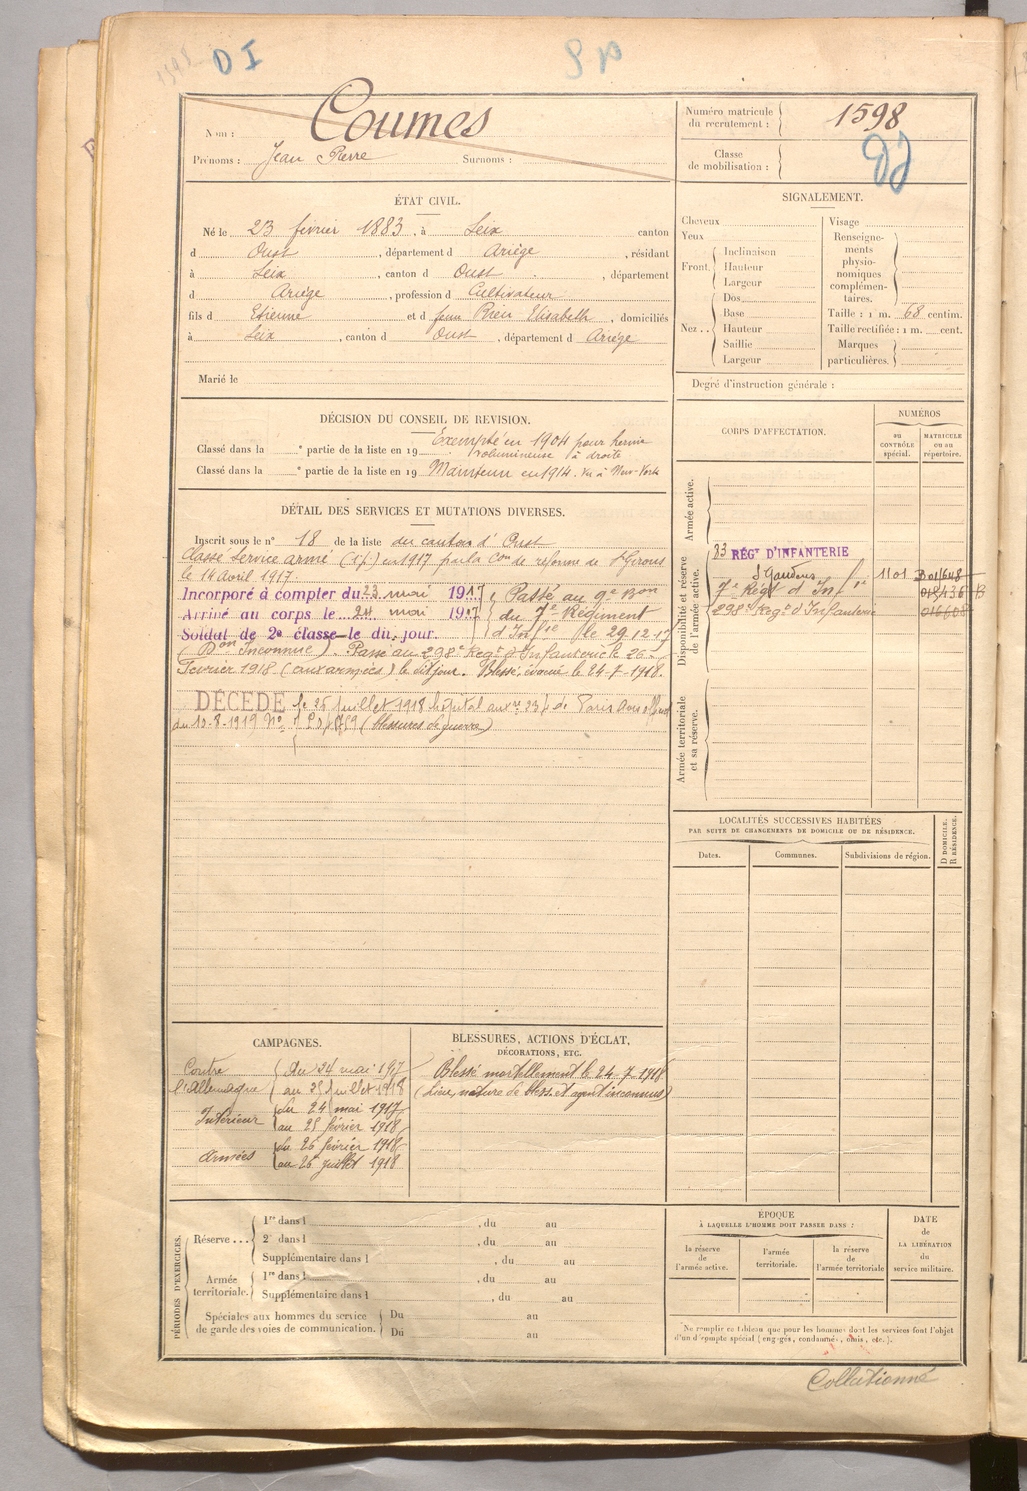 1598
D I
S N
Nom : Coumes
Prénoms : Jean Pierre Surnoms :
Numéro matricule du recrutement : 1598
Classe de mobilisation :
ÉTAT CIVIL.
Né le 23 février 1883, à Seix canton
d Oust, département d Ariège, résidant
à Seix, canton d Oust, département
d Ariège, profession d Cultivateur
fils d Etienne et d feue Rieu Elisabeth, domiciliés
à Seix, canton d Oust, département d Ariège
Marié le
SIGNALEMENT.
Cheveux
Yeux
Front.
Inclinaison
Hauteur
Largeur
Nez..
Dos
Base
Hauteur
Saillie
Largeur
Visage
Renseigne-
ments
physio-
nomiques
complémen-
taires.
Taille : 1 m. 68 centim.
Taille rectifiée : 1 m. cent.
Marques
particulières.
Degré d'instruction générale :
DÉCISION DU CONSEIL DE REVISION.
Exempté en 1904 pour hernie
Classé dans la e partie de la liste en 19 volumineuse à droite
Classé dans la e partie de la liste en 19 Maintenu en 1914. Vu à New-York
DÉTAIL DES SERVICES ET MUTATIONS DIVERSES.
Inscrit sous le n° 18 de la liste du canton d'Oust
Classé Service armé en 1917 par la Con de réforme de St Girons
le 14 avril 1917.
Incorporé à compter du 23 mai 1917, Passé au 9e Bon
Arrivé au corps le 24 mai 1917 du 7e Régiment
Soldat de 2e classe le dit jour. d'Infie le 29.12.17
(Don Inconnue). Passé au 298e Regt d'Infanterie le 26
Fevrier 1918 (aux armées) le dit jour. Blessé, évacué le 24-7-1918.
DÉCÉDÉ le 26 Juillet 1918 hôpital aux re 23/ de Paris
du 10-8-1919 No (blessures de guerre)
CORPS D'AFFECTATION.
NUMÉROS
au
CONTRÔLE
spécial.
MATRICULE
ou au
répertoire.
Armée active.
Disponibilité et réserve
de l'armée active.
83 RÉGT D'INFANTERIE
St Gaudens 1101
7e Régt d'Infie
298e Regt d'Infanterie
Armée territoriale
et sa réserve.
LOCALITÉS SUCCESSIVES HABITÉES
PAR SUITE DE CHANGEMENTS DE DOMICILE OU DE RÉSIDENCE.
Dates.
Communes.
Subdivisions de région.
D DOMICILE.
R RÉSIDENCE.
CAMPAGNES.
Contre du 24 mai 1917
l'Allemagne au 25 Juillet 1918
Intérieur du 24 mai 1917
au 25 février 1918
Armées du 26 février 1918
au 26 juillet 1918
BLESSURES, ACTIONS D'ÉCLAT,
DÉCORATIONS, ETC.
Blessé mortellement le 24-7-1918
(lieu, nature de bless. et agent inconnus)
PÉRIODES D'EXERCICES.
Réserve...
1re dans l , du au
2e dans l , du au
Supplémentaire dans l , du au
Armée
territoriale.
1re dans l , du au
Supplémentaire dans l , du au
Spéciales aux hommes du service
de garde des voies de communication.
Du au
Du au
ÉPOQUE
À LAQUELLE L'HOMME DOIT PASSER DANS :
la réserve
de
l'armée active.
l'armée
territoriale.
la réserve
de
l'armée territoriale
DATE
de
LA LIBÉRATION
du
service militaire.
Ne remplir ce tableau que pour les hommes dont les services font l'objet
d'un décompte spécial (engagés, condamnés, omis, etc.).
Collationné